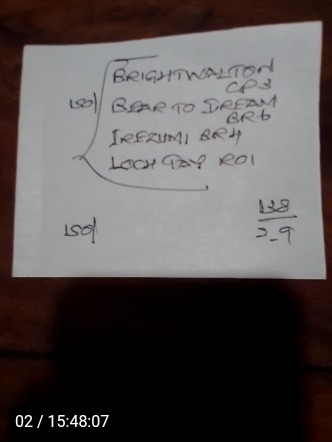 BRIGHTWALTON
CP3
150/ BEAR TO DREAM
BR6
IREZUMI BR4
LOCH TAY RO1
138
150/ 2-9
02 / 15:48:07